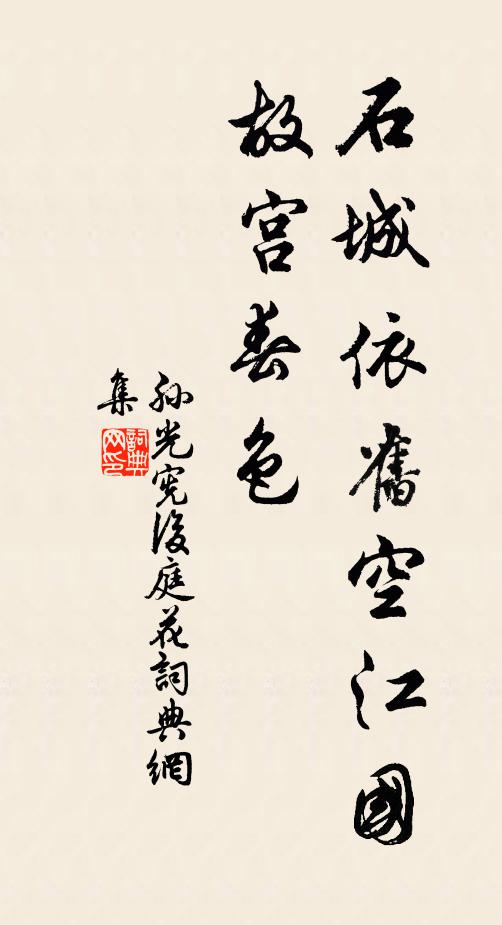 石城依舊空江國
故宮春色
孫光憲後庭花詞典網
集
詞典
网印